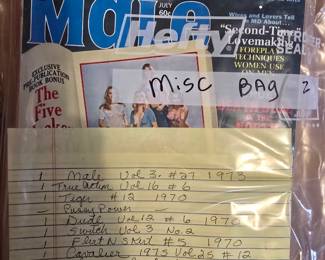 Male
JULY
60c
Hefty
Wives and Lovers Tell
MD About......
"Second-Time
Lovemaking"
FOREPLAY
TECHNIQUES
WOMEN USE
SEAL
EXCLUSIVE
PRE-PUBLICATION
BOOK BONUS
The
Five
Misc BAG 2
1 Male Vol 3. #27 1973
1 True Action Vol 16 #6
1 Tiger #12 1970
— Pussy Power
1 Dude Vol 12 #6 1970
1 Switch Vol 3 No. 2
1 Flirt N Skirt #5 1970
1 Cavalier 1975 Vol 25 #12